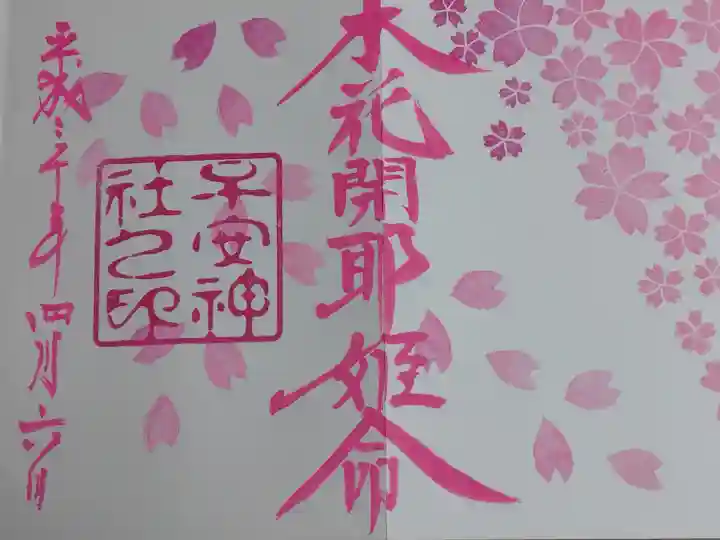 木花開耶姫命
子安神
社之印
平成三十年四月六日